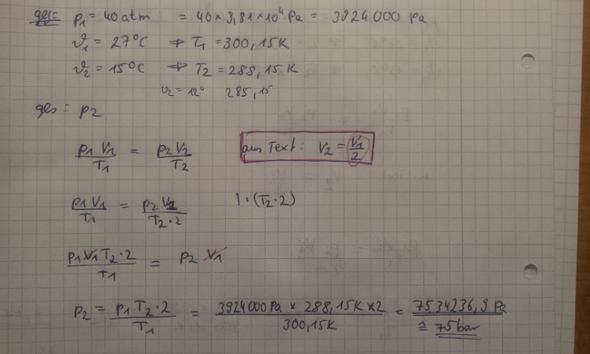 geg: p₁ = 40 atm = 40 × 9,81×10⁴ Pa = 3924000 Pa
ϑ₁ = 27°C ⇒ T₁ = 300,15K
ϑ₂ = 15°C ⇒ T₂ = 288,15 K
ϑ₂ = 12° 285,15
ges: p₂
p₁ V₁ / T₁ = p₂ V₂ / T₂ aus Text: V₂ = V₁ / 2
p₁ V₁ / T₁ = p₂ V₁ / T₂ · 2 | · (T₂ · 2)
p₁ V₁ T₂ · 2 / T₁ = p₂ V₁
p₂ = p₁ T₂ · 2 / T₁ = 3924000 Pa × 288,15K × 2 / 300,15K = 7534236,9 Pa
≅ 75 bar